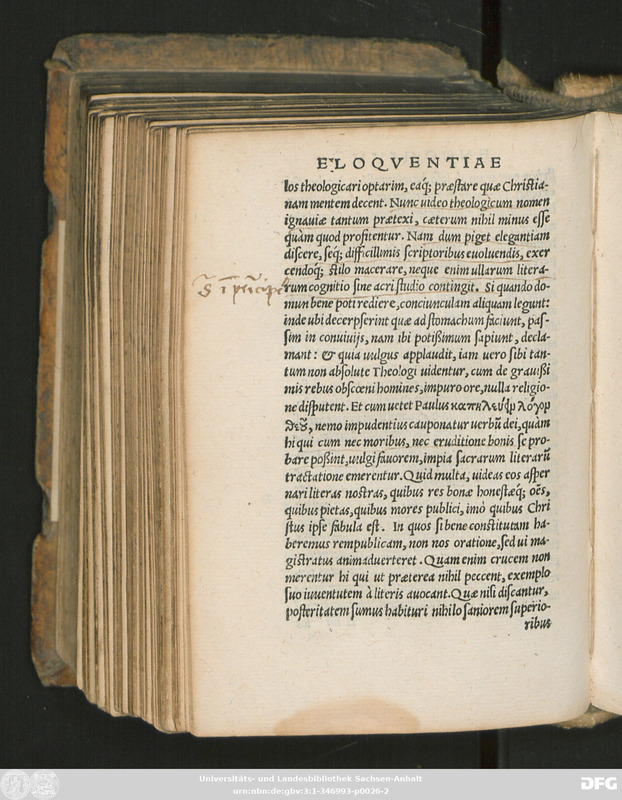 ELOQVENTIAE
los theologicari optarim, eaq́; præstare quæ Christia-
nam mentem decent. Nunc uideo theologicum nomen
ignauiæ tantum prætexi, cæterum nihil minus esse
quàm quod profitentur. Nam dum piget elegantiam
discere, seq́; difficillimis scriptoribus euoluendis, exer
cendoq́; stilo macerare, neque enim ullarum litera-
rum cognitio sine acri studio contingit. Si quando do-
mun bene poti rediere, conciunculam aliquam legunt:
inde ubi decerpserint quæ ad stomachum faciunt, pas-
sim in conuiuijs, nam ibi potißimum sapiunt, decla-
mant: & quia uulgus applaudit, iam uero sibi tan-
tum non absolute Theologi uidentur, cum de grauißi
mis rebus obscœni homines, impuro ore, nulla religio-
ne disputent. Et cum uetet Paulus καπηλεύειν λόγον
θεοῦ, nemo impudentius cauponatur uerbū dei, quàm
hi qui cum nec moribus, nec eruditione bonis se pro-
bare poßint, uulgi fauorem, impia sacrarum literarū
tractatione emerentur. Quid multa, uideas eos asper
nari literas nostras, quibus res bonæ honestæq́; oēs,
quibus pietas, quibus mores publici, imò quibus Chri
stus ipse fabula est. In quos si bene constitutam ha-
beremus rempublicam, non nos oratione, sed ui ma-
gistratus animaduerteret. Quam enim crucem non
merentur hi qui ut præterea nihil peccent, exemplo
suo iuuentutem à literis auocant. Quæ nisi discantur,
posteritatem sumus habituri nihilo saniorem superio-
ribus
Universitäts- und Landesbibliothek Sachsen-Anhalt
urn:nbn:de:gbv:3:1-346993-p0026-2
DFG